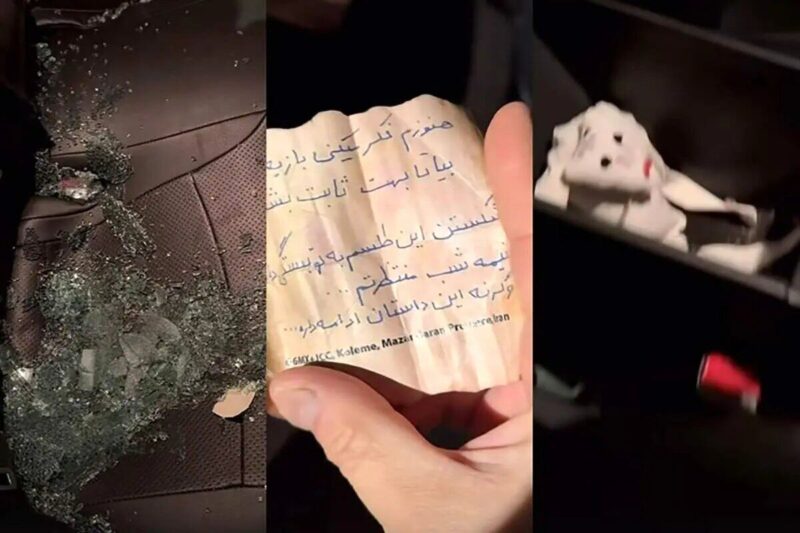 هنوزم فکر میکنی بازیه
بیا تا بهت ثابت بشه
شکستن این طلسم به تو بستگی
نیمه شب منتظرتم ...
وگرنه این داستان ادامه داره...
Koleme, Mazandaran Province, Iran